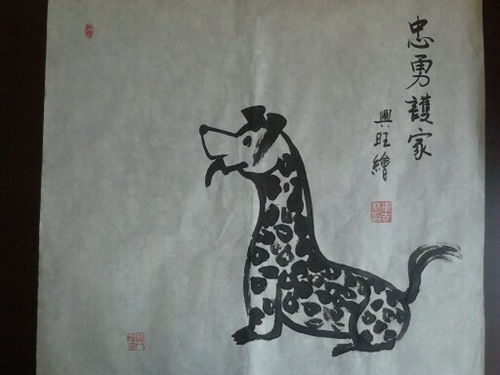 忠勇護家
興旺繪